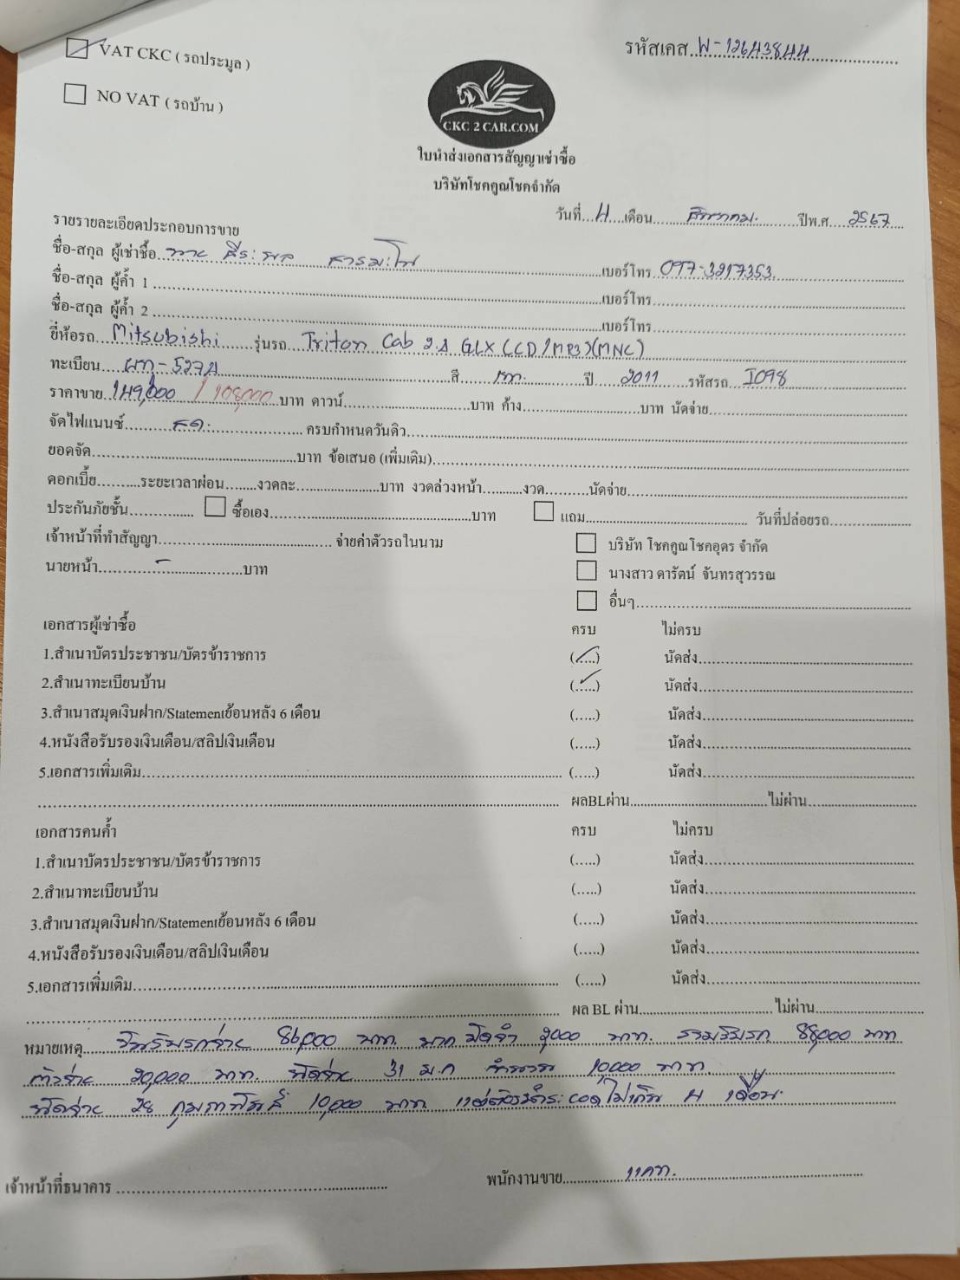 VAT CKC ( รถประมูล )
รหัสเคส W-12643844
NO VAT ( รถบ้าน )
CKC 2 CAR.COM
ใบนำส่งเอกสารสัญญาเช่าซื้อ
บริษัทโชคคูณโชคจำกัด
วันที่ 4 เดือน สิงหาคม ปีพ.ศ. 2567
รายรายละเอียดประกอบการขาย
ชื่อ-สกุล ผู้เช่าซื้อ เบอร์โทร 097-3217353
ชื่อ-สกุล ผู้ค้ำ 1 เบอร์โทร
ชื่อ-สกุล ผู้ค้ำ 2 เบอร์โทร
ยี่ห้อรถ Mitsubishi รุ่นรถ Triton Cab 2.4 GLX (CD/MP3)(MNC)
ทะเบียน ผก-5274 สี เทา ปี 2011 รหัสรถ I098
ราคาขาย 149,000 / 108,000 บาท ดาวน์ บาท ค้าง บาท นัดจ่าย
จัดไฟแนนซ์ สด ครบกำหนดวันดิว
ยอดจัด บาท ข้อเสนอ (เพิ่มเติม)
ดอกเบี้ย ระยะเวลาผ่อน งวดละ บาท งวดล่วงหน้า งวด นัดจ่าย
ประกันภัยชั้น ซื้อเอง บาท แถม วันที่ปล่อยรถ
เจ้าหน้าที่ทำสัญญา จ่ายค่าตัวรถในนาม บริษัท โชคคูณโชคอุดร จำกัด
นายหน้า - บาท นางสาว ดารัตน์ จันทรสุวรรณ
อื่นๆ
เอกสารผู้เช่าซื้อ ครบ ไม่ครบ
1.สำเนาบัตรประชาชน/บัตรข้าราชการ (.....) นัดส่ง
2.สำเนาทะเบียนบ้าน (.....) นัดส่ง
3.สำเนาสมุดเงินฝาก/Statementย้อนหลัง 6 เดือน (.....) นัดส่ง
4.หนังสือรับรองเงินเดือน/สลิปเงินเดือน (.....) นัดส่ง
5.เอกสารเพิ่มเติม (.....) นัดส่ง
ผลBLผ่าน ไม่ผ่าน
เอกสารคนค้ำ ครบ ไม่ครบ
1.สำเนาบัตรประชาชน/บัตรข้าราชการ (.....) นัดส่ง
2.สำเนาทะเบียนบ้าน (.....) นัดส่ง
3.สำเนาสมุดเงินฝาก/Statementย้อนหลัง 6 เดือน (.....) นัดส่ง
4.หนังสือรับรองเงินเดือน/สลิปเงินเดือน (.....) นัดส่ง
5.เอกสารเพิ่มเติม (.....) นัดส่ง
ผล BL ผ่าน ไม่ผ่าน
หมายเหตุ วันรับรถจ่าย 86,000 บาท บวกมัดจำ 2,000 บาท รวมรับรถ 88,000 บาท
ค้างจ่าย 20,000 บาท นัดจ่าย 31 ม.ค จำนวน 10,000 บาท
นัดจ่าย 28 กุมภาพันธ์ 10,000 บาท แต่ต้องชำระยอดไม่เกิน 4 เดือน
เจ้าหน้าที่ธนาคาร พนักงานขาย